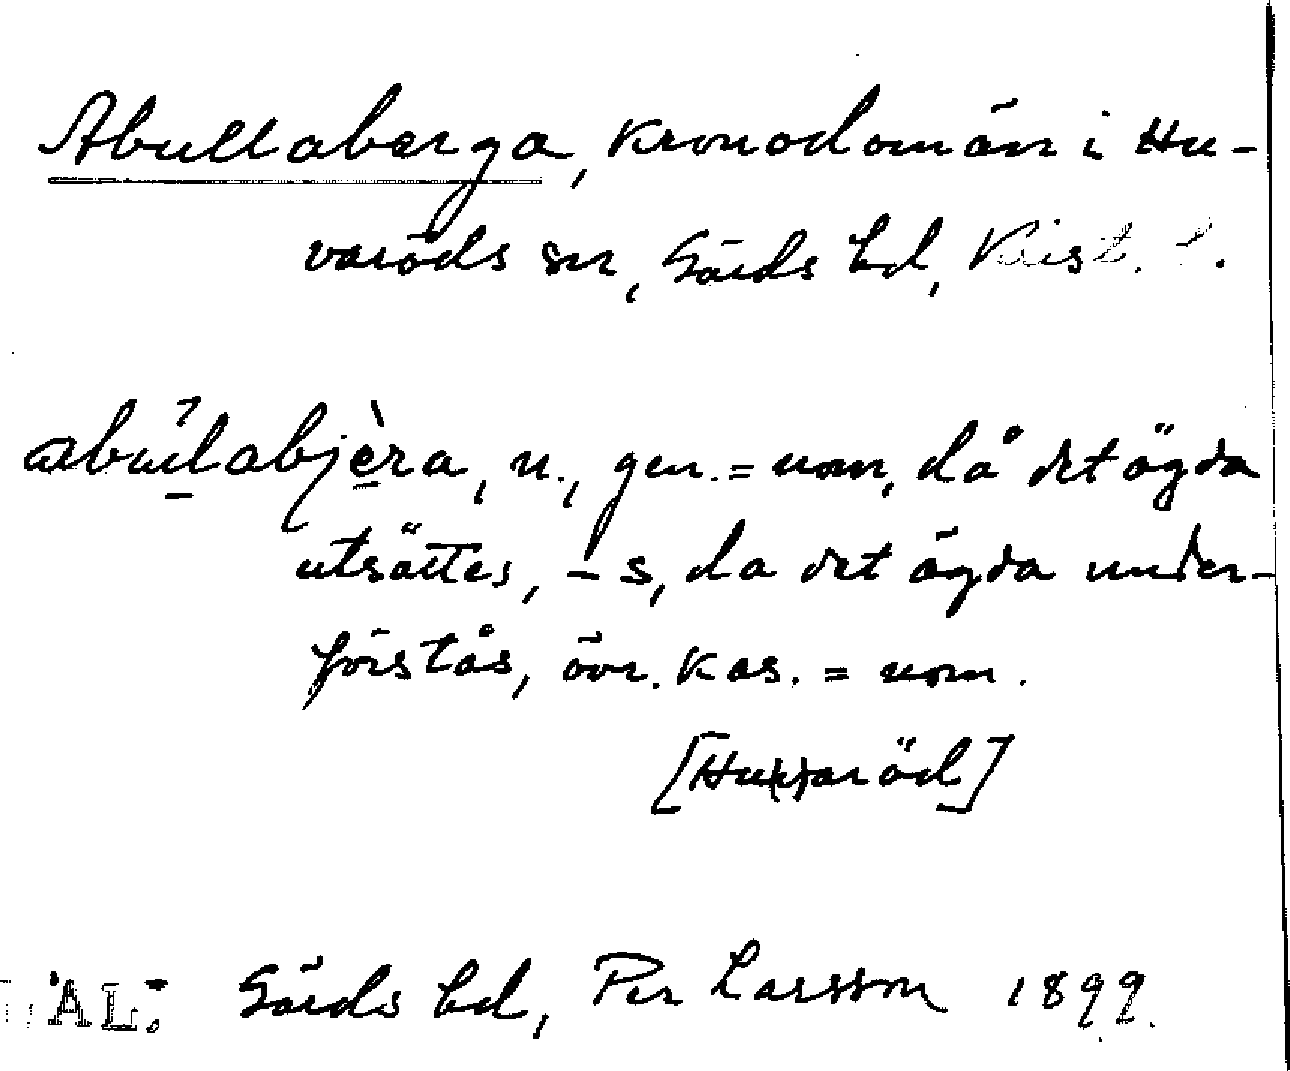 Abullaberga, kronodomän i Hu-
varöds sn, Gärds hd, Krist. l.
abúlabjèra, n., gen. = nom, då det ägda
utsättes, -s, da det ägda under-
förstås, övr. kas. = nom.
[Hu(v)aröd]
AL: Gärds hd, Per Larsson 1899.